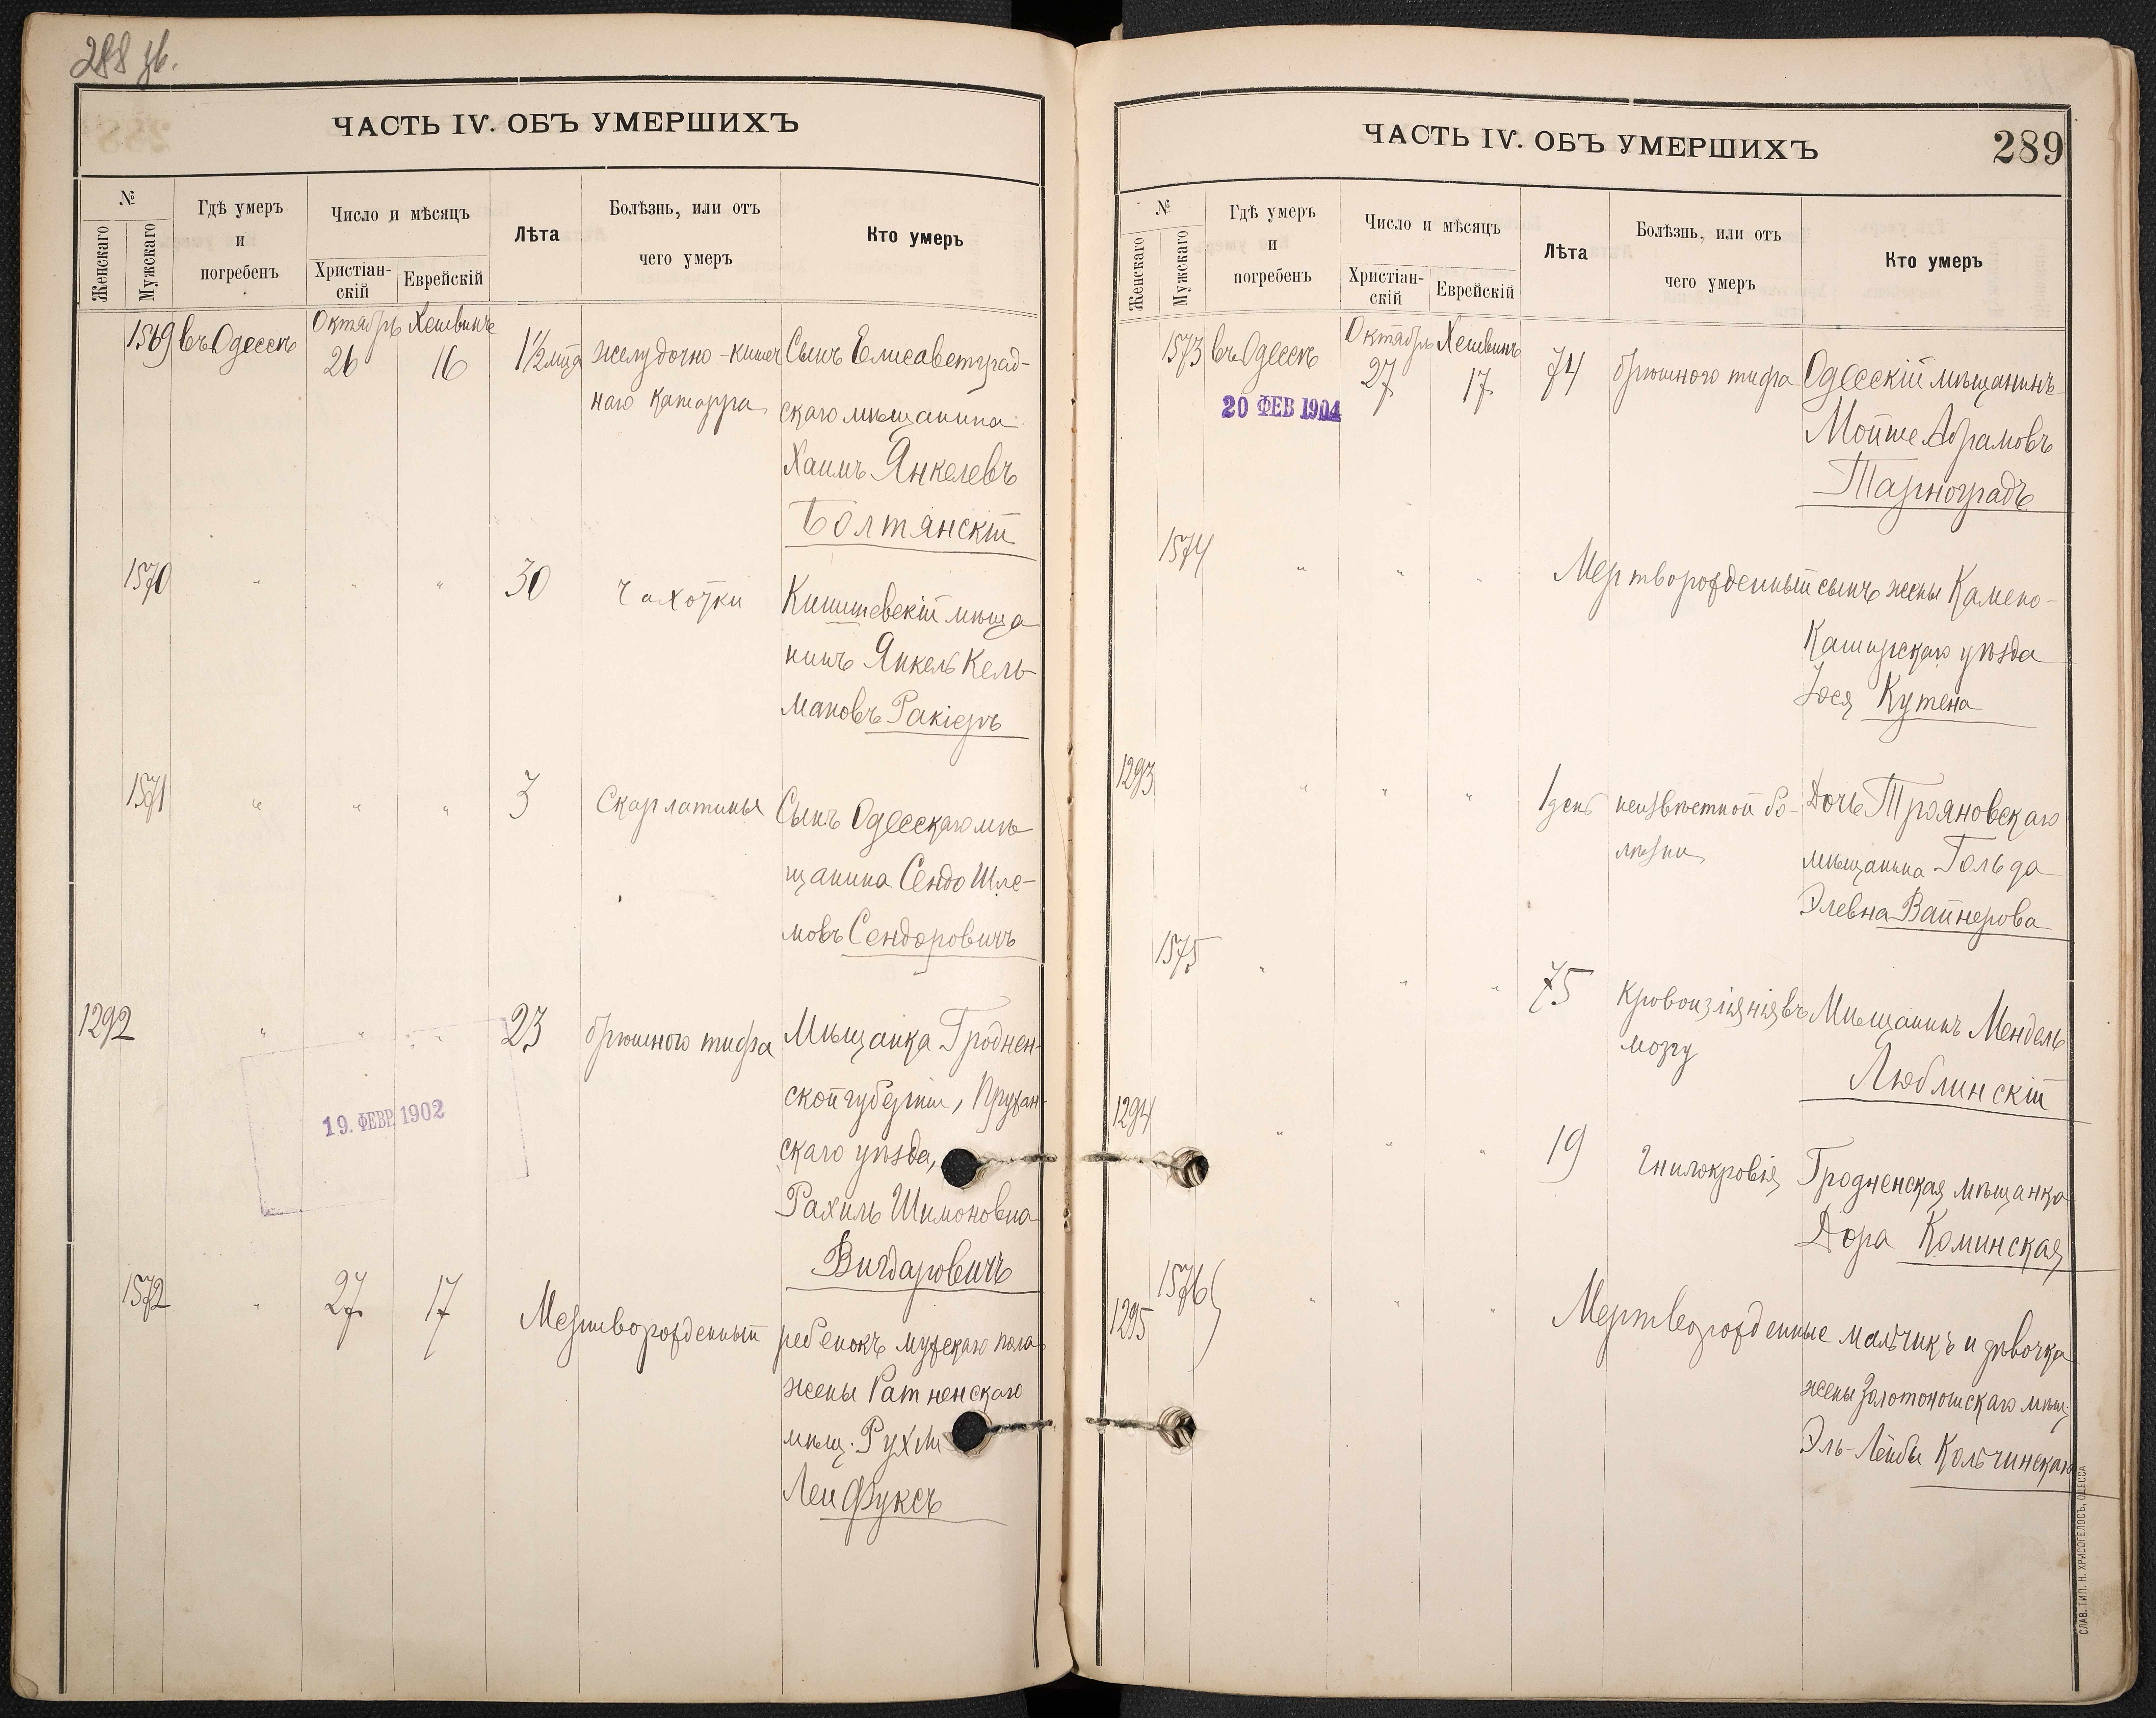 288 об.
ЧАСТЬ IV. ОБЪ УМЕРШИХЪ
№
Женскаго
Мужскаго
Гдѣ умеръ
и
погребенъ
Число и мѣсяцъ
Христіан-
скій
Еврейскій
Лѣта
Болѣзнь, или отъ
чего умеръ
Кто умеръ
1569 въ Одессѣ Октябрь 26 Хешвинъ 16 1½ мца желудочно-кишеч Сынъ Елисаветград-
наго катарра скаго мѣщанина
Хаимъ Янкелевъ
Болтянскій
1570 " " " 30 Чахотки Кишиневскій мѣща
нинъ Янкель Кель-
мановъ Ракіеръ
1571 " " " 3 Скарлатины Сынъ Одесскаго мѣ
щанина Сендо Шле-
мовъ Сендоровичъ
1292 " " " 23 брюшного тифа Мѣщанка Гроднен-
ской губерніи, Пружан-
скаго уѣзда,
Рахиль Шимоновна
Вигдаровичъ
19. ФЕВР. 1902
1572 " 27 17 Мертворожденный ребенокъ мужскаго пола
жены Ратненскаго
мѣщ. Рухли
Леи Фуксъ
ЧАСТЬ IV. ОБЪ УМЕРШИХЪ
289
№
Женскаго
Мужскаго
Гдѣ умеръ
и
погребенъ
Число и мѣсяцъ
Христіан-
скій
Еврейскій
Лѣта
Болѣзнь, или отъ
чего умеръ
Кто умеръ
1573 въ Одессѣ Октябрь 27 Хешвинъ 17 74 брюшного тифа Одесскій мѣщанинъ
20 ФЕВ 1904
Мойше Абрамовъ
Тарноградъ
1574 " " " Мертворожденный сынъ жены Камено-
Каширскаго уѣзда
Іося Кутена
1293 " " " 1 день неизвѣстной бо- Дочь Трояновскаго
лѣзни мѣщанина Гольда
Элевна Вайнерова
1575 " " " 75 Кровоизліянія въ Мѣщанинъ Мендель
мозгу Люблинскій
1294 " " " 19 Гнилокровія Гродненская мѣщанка
Дора Коминская
1576
1295 " " " Мертворожденные мальчикъ и дѣвочка
жены Золотоношскаго мѣщ.
Эль-Лейбы Кольчинскаго
СЛАВ. ТИП. Н. ХРИСОГЕЛОСЪ, ОДЕССА